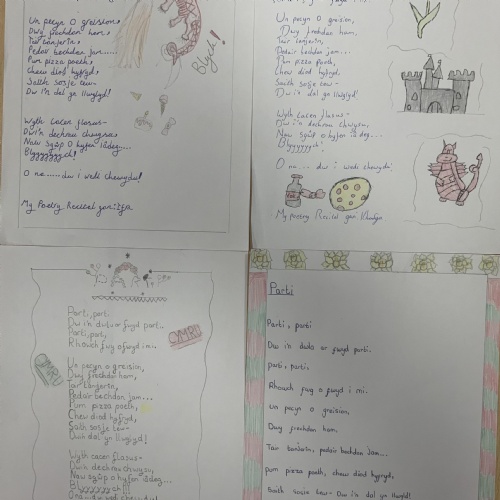 Un pecyn o greision,
Dwy frechdan ham,
Tair tanjerin,
Pedair bechdan jam.....
Pum pizza poeth,
Chew diod hyfryd,
Saith sosje tew-
Dw in dal yn llwglyd!
Wyth cacen flasus-
Dwi'n dechrau chwysu
Naw sgŵp o hyfen iâ
deg....
Blyyyyyyych!
O na.....dw i wedi chewydu!
My Poetry Recital gan
Blych!
Un pecyn o greision,
Dwy frechdan ham,
Tair tanjerin,
Pedair bechdan jam...
Pum pizza poeth,
Chew diod hyfryd,
Saith sosje tew-
Dw i'n dal yn llwglyd!
Wyth cacen flasus-
Dw i'n dechrau chwysu,
Naw sgŵp o hyfen iâ
deg...
Blyyyyyych!
O na... dw i wedi chewydu!
My poetry Recital gan
Parti, parti
Dw i'n dwlu ar fwyd parti.
Parti, parti,
Rhowch fwy o fwyd i mi.
CYMRU
Un pecyn o greision,
Dwy frechdan ham,
Tair tanjerin,
Pedair bechdan jam...
Pum pizza poeth,
Chew diod hyfryd,
Saith sosje tew-
Dwi'n dal yn llwglyd!
Wyth cacen flasus-
Dwi'n dechrau chwysu,
Naw sgŵp o hyfen iâ
deg...
Blyyyyych!!!
Parti
Parti, parti
Dw i'n dwlu ar fwyd parti.
parti, parti,
Rhowch fwy o fwyd i mi.
Un pecyn o greision,
Dwy frechdan ham.
Tair tanjerin, pedair bechdan jam...
pum pizza poeth, chew diod hyfryd,
Saith sosje tew- Dw i'n dal yn llwglyd!